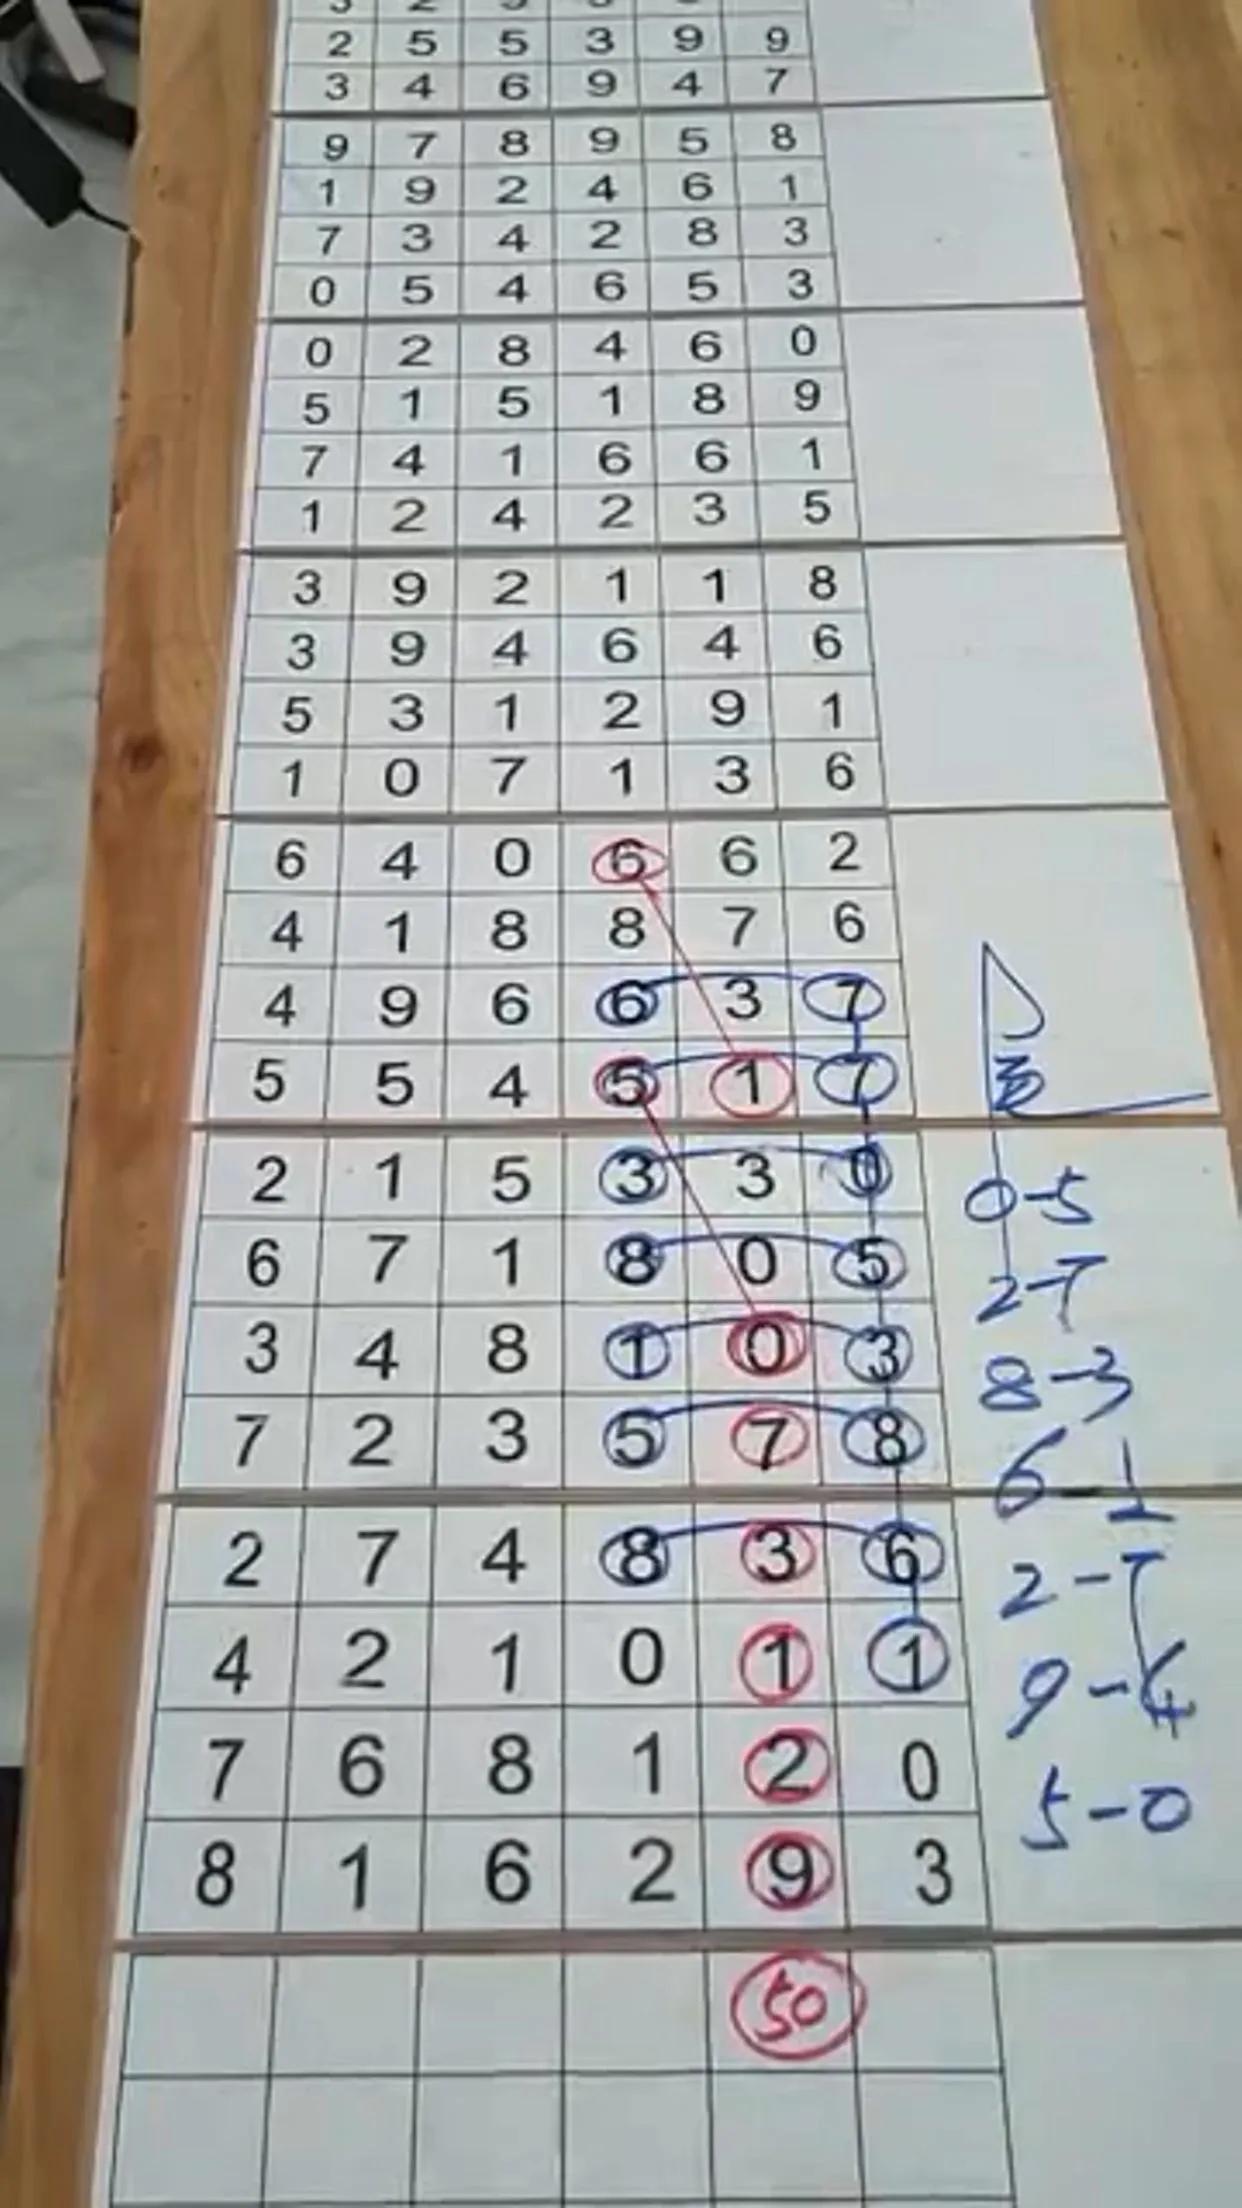 2 5 5 3 9 9
3 4 6 9 4 7
9 7 8 9 5 8
1 9 2 4 6 1
7 3 4 2 8 3
0 5 4 6 5 3
0 2 8 4 6 0
5 1 5 1 8 9
7 4 1 6 6 1
1 2 4 2 3 5
3 9 2 1 1 8
3 9 4 6 4 6
5 3 1 2 9 1
1 0 7 1 3 6
6 4 0 6 6 2
4 1 8 8 7 6
4 9 6 6 3 7
5 5 4 5 1 7
2 1 5 3 3 0
0-5
6 7 1 8 0 5
2-7
3 4 8 1 0 3
8-3
7 2 3 5 7 8
6-1
2 7 4 8 3 6
2-7
4 2 1 0 1 1
9-4
7 6 8 1 2 0
5-0
8 1 6 2 9 3
50